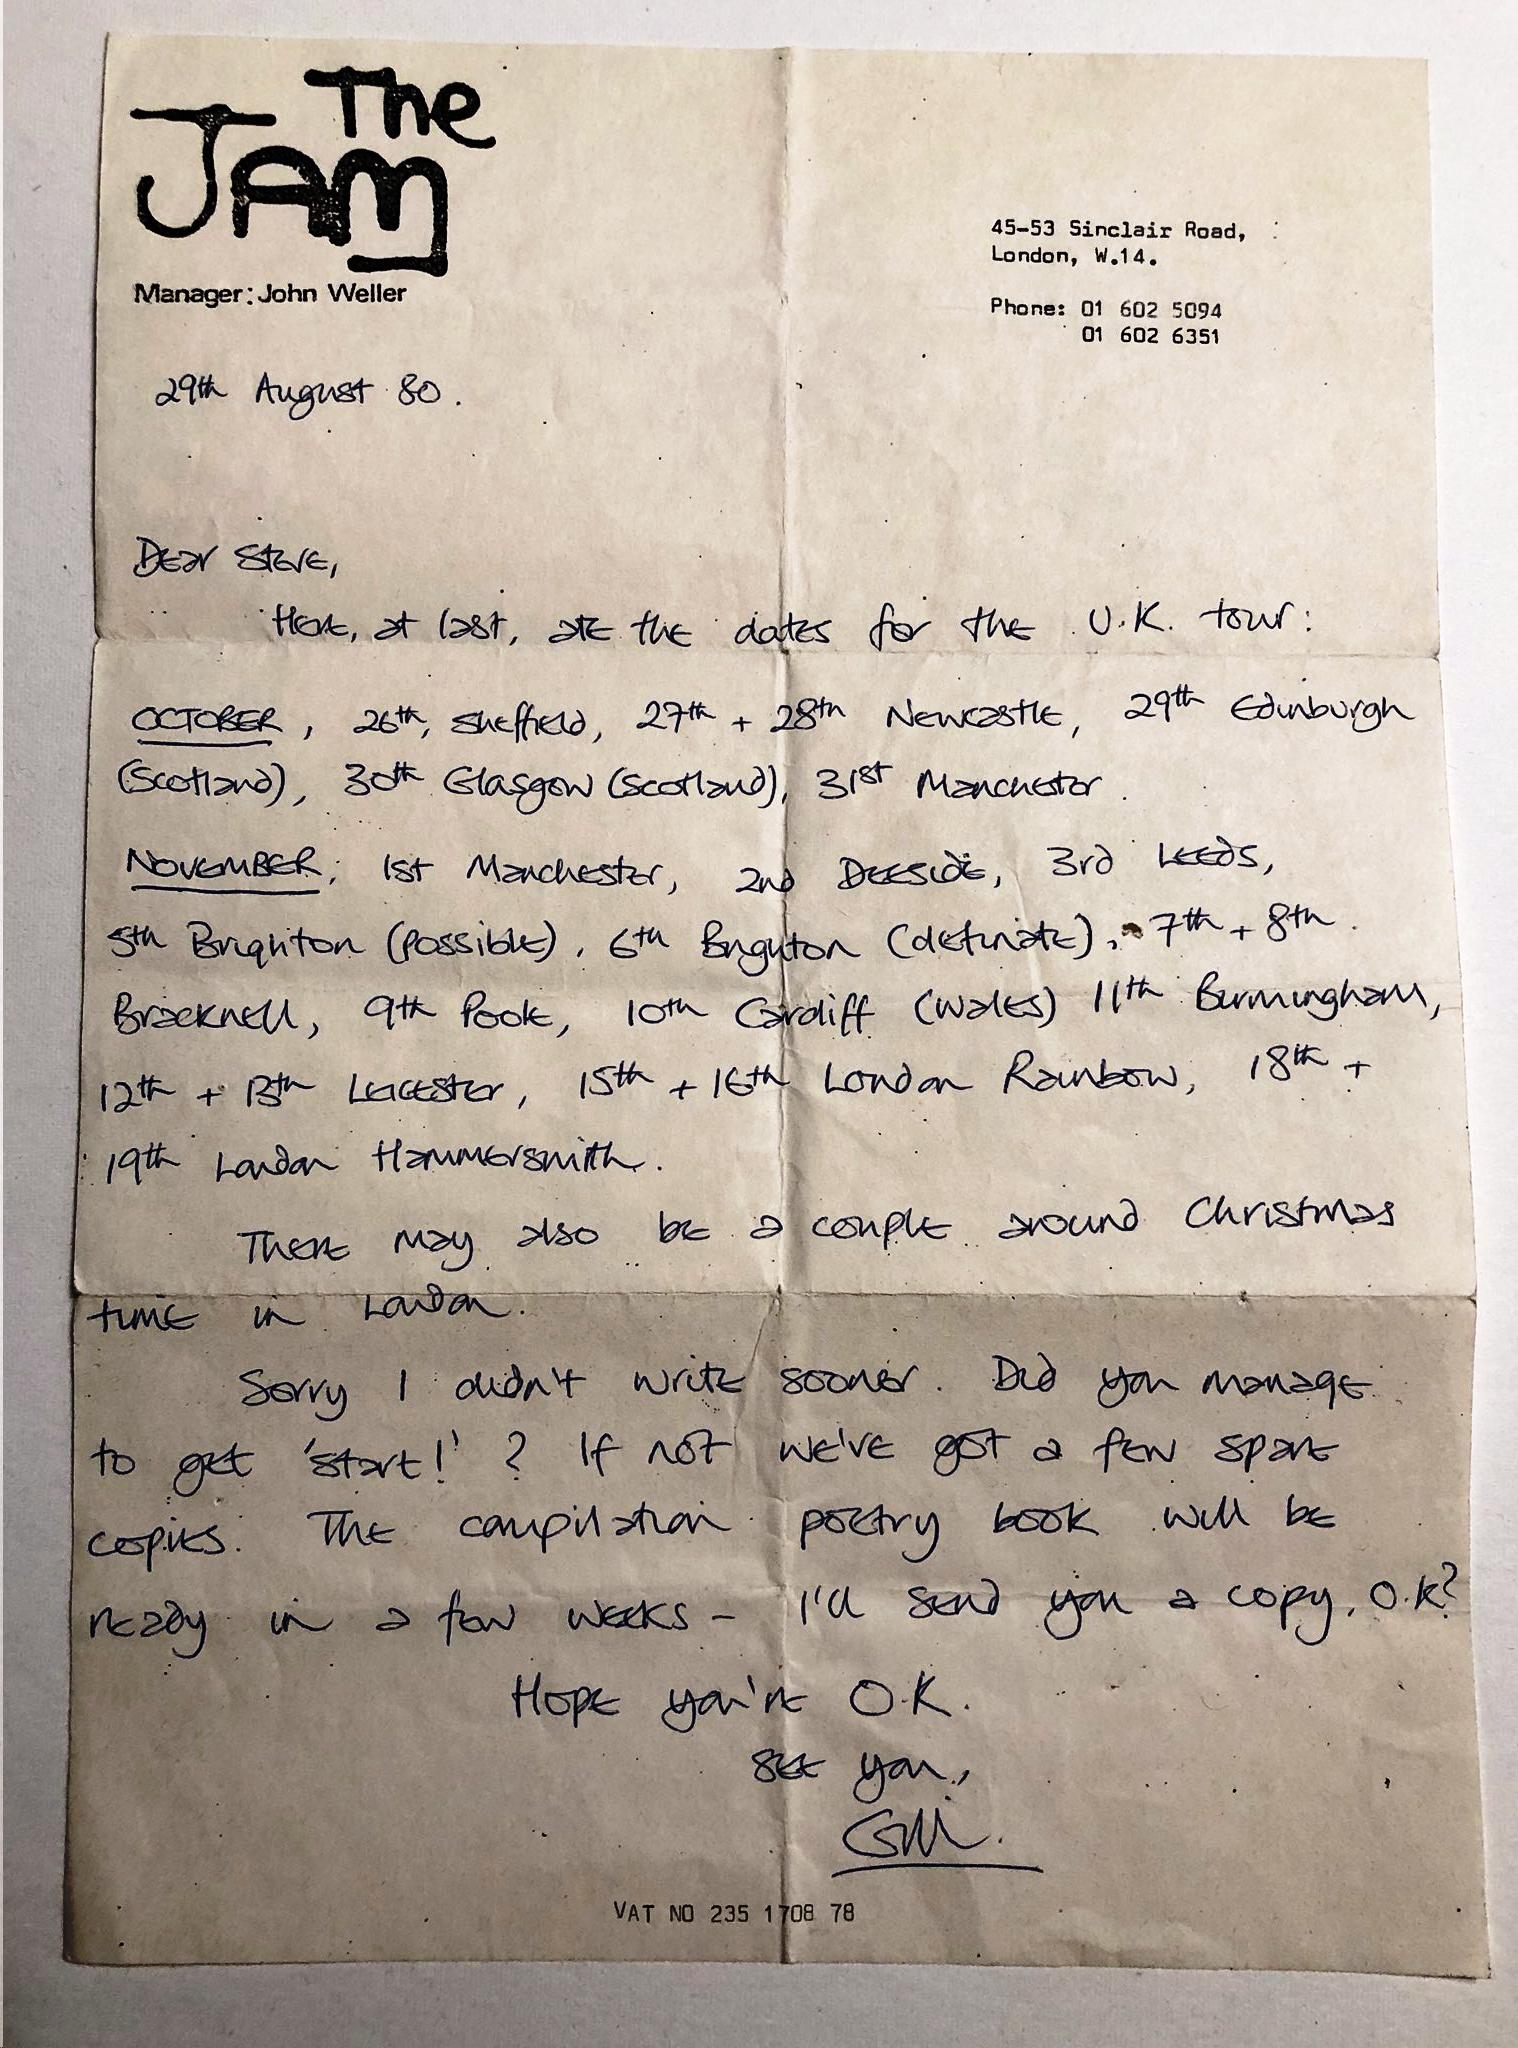 The
JAM
Manager: John Weller
45-53 Sinclair Road,
London, W.14.
Phone: 01 602 5094
01 602 6351
29th August 80.
Dear Steve,
Here, at last, are the dates for the U.K. tour:
OCTOBER, 26th, Sheffield, 27th + 28th Newcastle, 29th Edinburgh
(Scotland), 30th Glasgow (Scotland), 31st Manchester.
NOVEMBER; 1st Manchester, 2nd Deeside, 3rd Leeds,
5th Brighton (possible), 6th Brighton (definate), 7th + 8th
Bracknell, 9th Poole, 10th Cardiff (Wales) 11th Birmingham,
12th + 13th Leicester, 15th + 16th London Rainbow, 18th +
19th London Hammersmith.
There may also be a couple around Christmas
time in London.
Sorry I didn't write sooner. Did you manage
to get 'start!'? If not we've got a few spare
copies. The compilation poetry book will be
ready in a few weeks - I'll send you a copy, O.K?
Hope you're O.K.
See you,
Gill.
VAT NO 235 1708 78